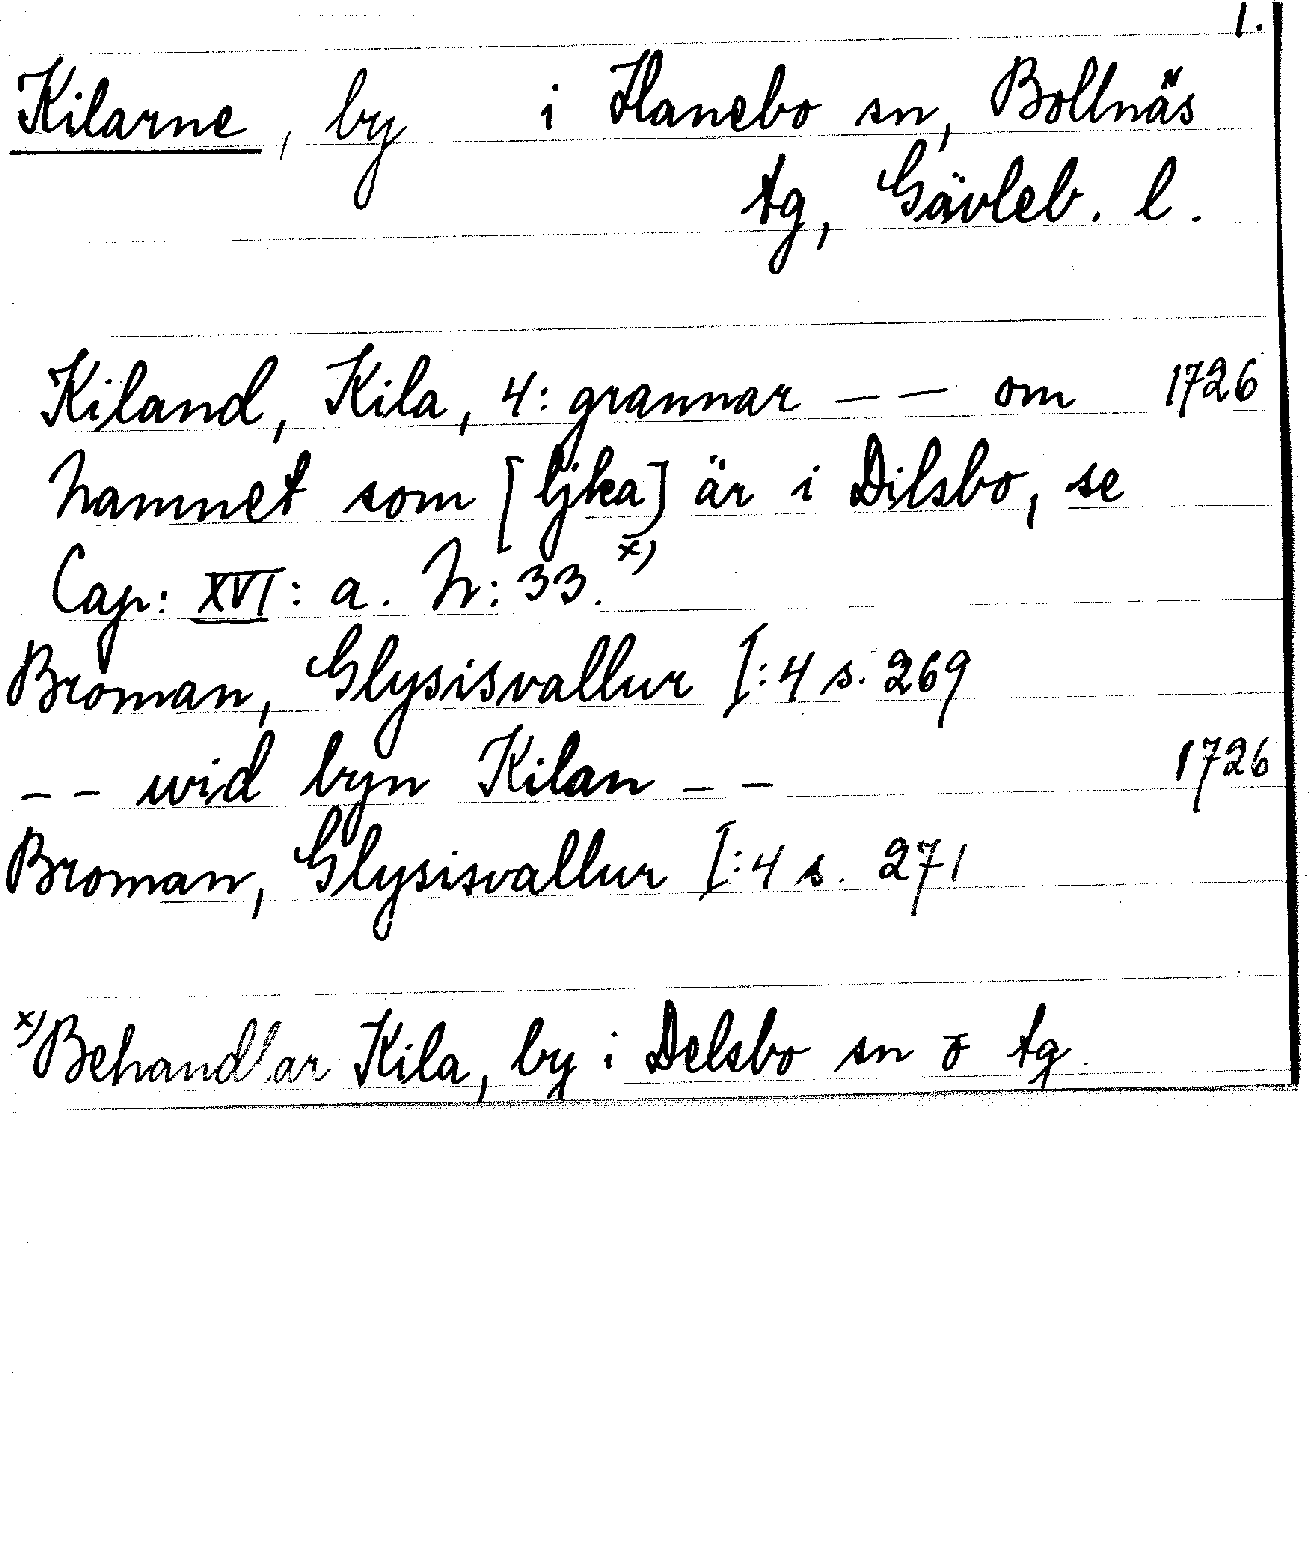 1.
Kilarne, by i Hanebo sn, Bollnäs
tg, Gävleb. l.
Kiland, Kila, 4: grannar – – om 1726
namnet som [ljka] är i Dilsbo, se
Cap: XVI: a. N: 33. x)
Broman, Glysisvallur I:4 s. 269
– – wid byn Kilan – – 1726
Broman, Glysisvallur I:4 s. 271
x) Behandlar Kila, by i Delsbo sn o tg.